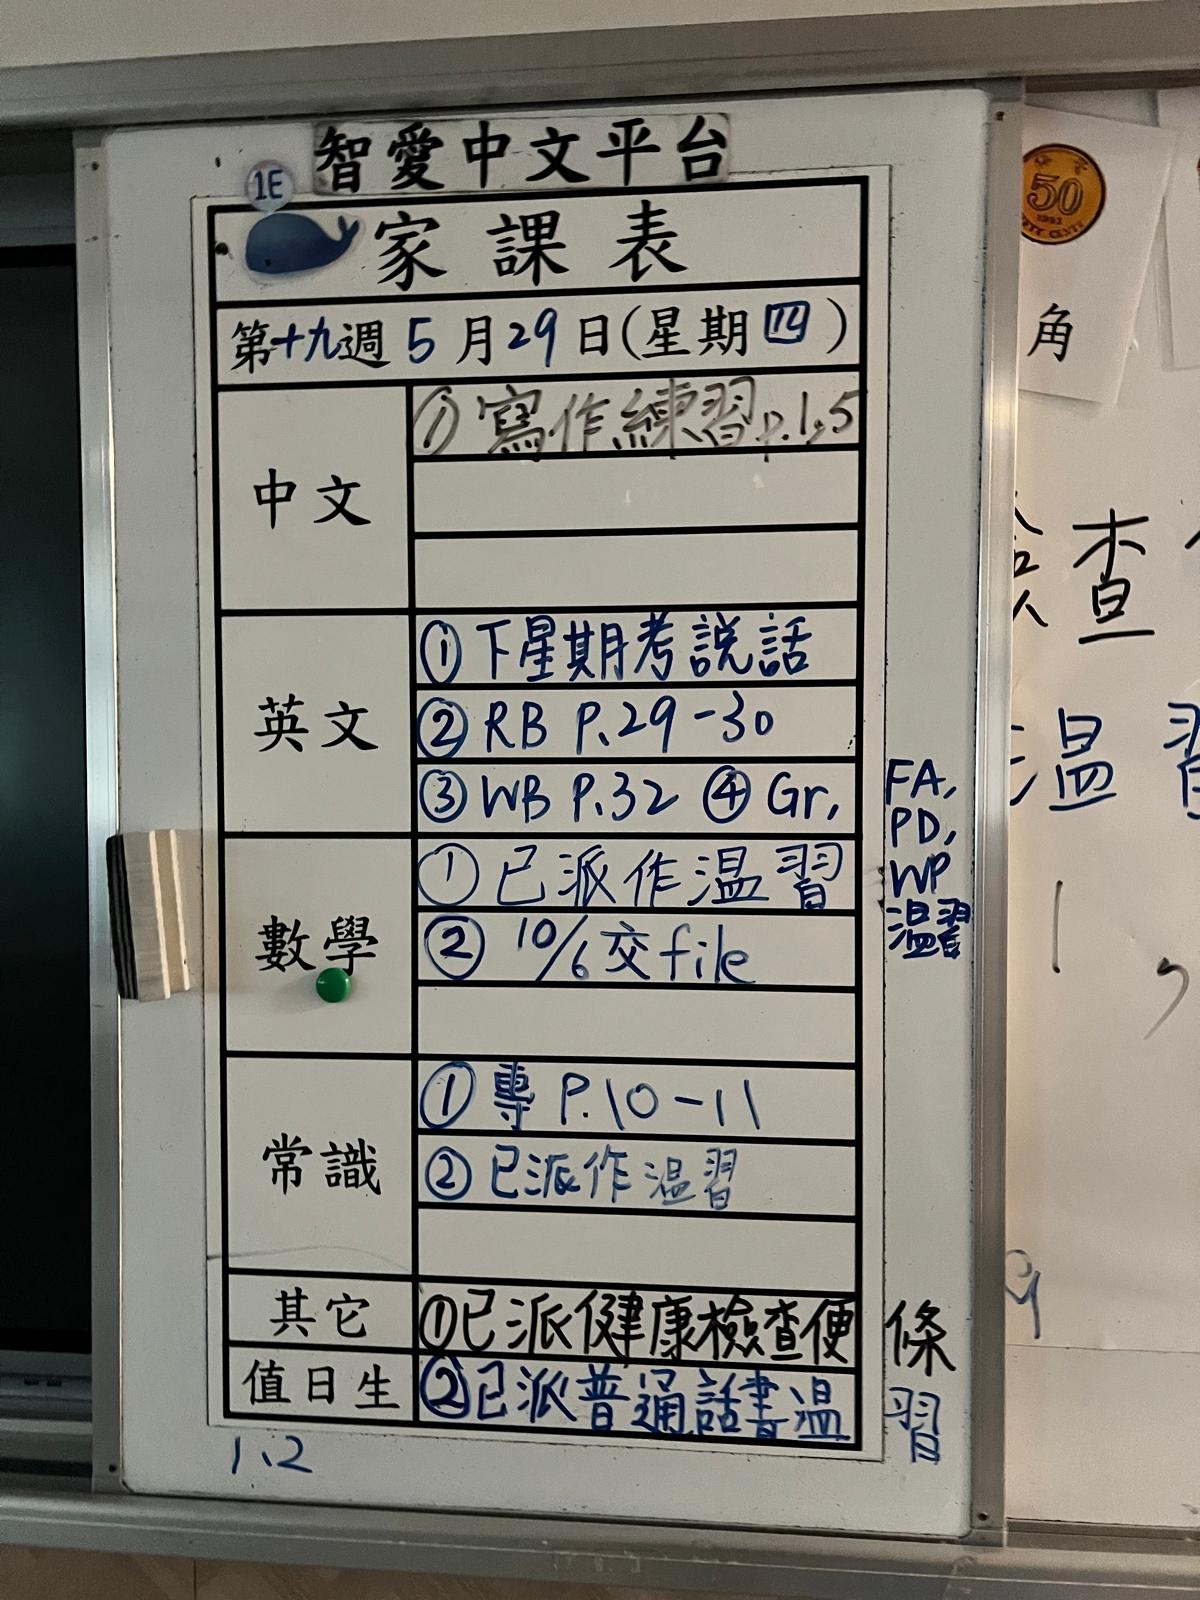 智愛中文平台
1E
家課表
第十九週 5月29日(星期四)
中文
① 寫作練習p.1,5
英文
① 下星期考說話
② RB P.29-30
③ WB P.32 ④ Gr,
FA,
PD,
WP
温習
數學
① 已派作温習
② 10/6交file
常識
① 專 P.10-11
② 已派作温習
其它
①已派健康檢查便條
值日生
②已派普通話書温習
1、2
50
1993
FIFTY CENTS
角
查
温習
1
,